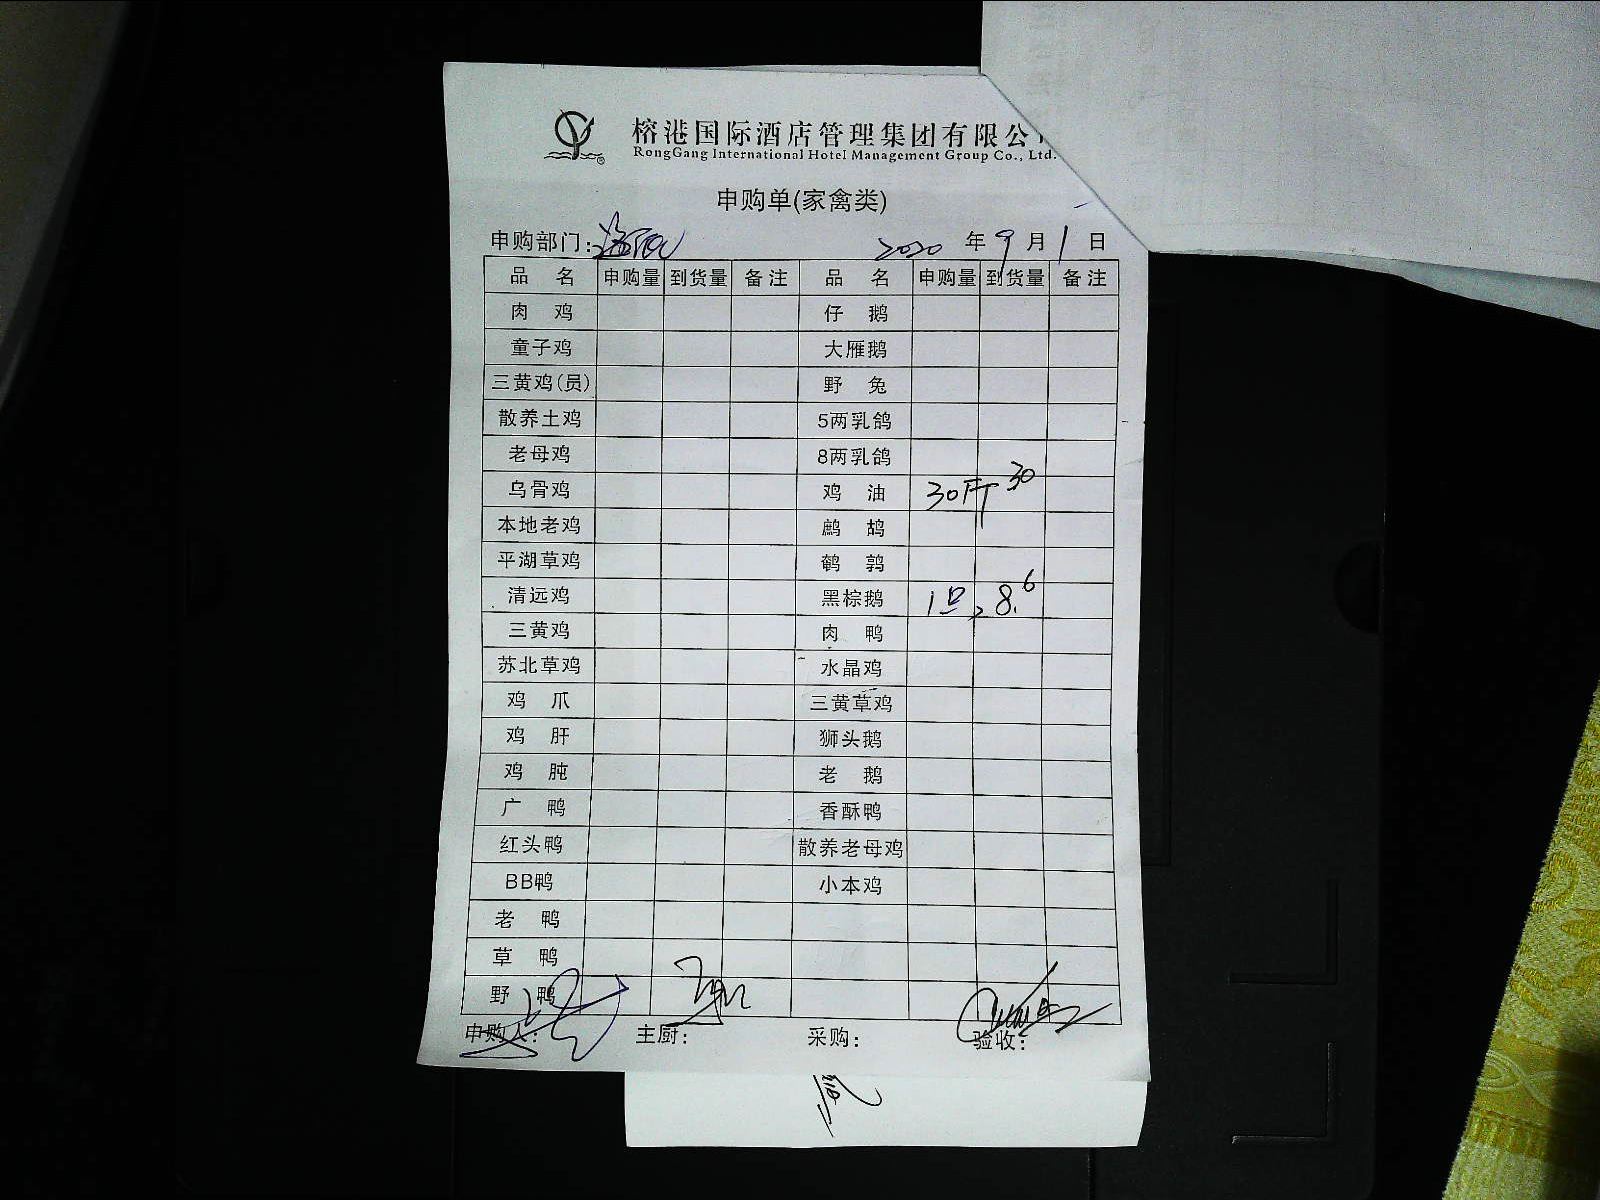 榕港国际酒店管理集团有限公
RongGang International Hotel Management Group Co., Ltd.
申购单(家禽类)
申购部门: 2020 年 9 月 1 日
品 名 申购量 到货量 备注 品 名 申购量 到货量 备注
肉 鸡 仔 鹅
童子鸡 大雁鹅
三黄鸡(员) 野 兔
散养土鸡 5两乳鸽
老母鸡 8两乳鸽
乌骨鸡 鸡 油 30斤 30
本地老鸡 鹧 鸪
平湖草鸡 鹌 鹑
清远鸡 黑棕鹅 1只 8.6
三黄鸡 肉 鸭
苏北草鸡 水晶鸡
鸡 爪 三黄草鸡
鸡 肝 狮头鹅
鸡 肫 老 鹅
广 鸭 香酥鸭
红头鸭 散养老母鸡
BB鸭 小本鸡
老 鸭
草 鸭
野 鸭
申购人: 主厨: 采购: 验收: